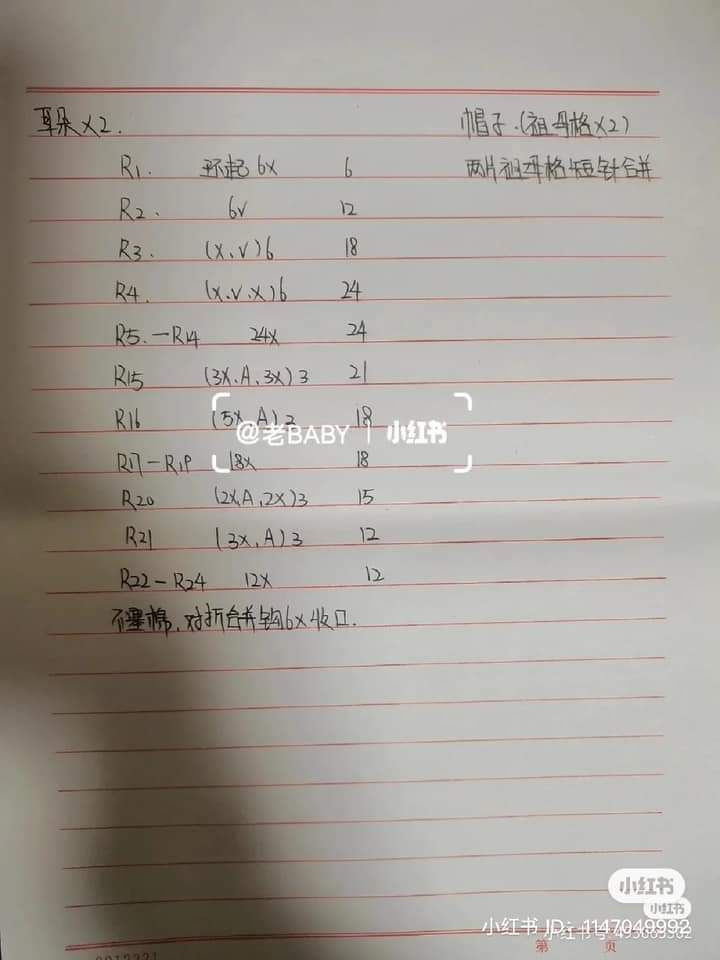 耳朵 X2. 帽子.(祖母格X2)
R1. 环起6X 6 两片祖母格短针合并
R2. 6V 12
R3. (X.V)6 18
R4. (X.V.X)6 24
R5.—R14 24X 24
R15 (3X.A.3X)3 21
R16 (5X.A)3 18
@老BABY | 小红书
R17—R19 18X 18
R20 (2X.A,2X)3 15
R21 (3X.A)3 12
R22—R24 12X 12
不塞棉.对折合并钩6X收口.
小红书
小红书
小红书 ID: 1147049992
小红书号
第 页